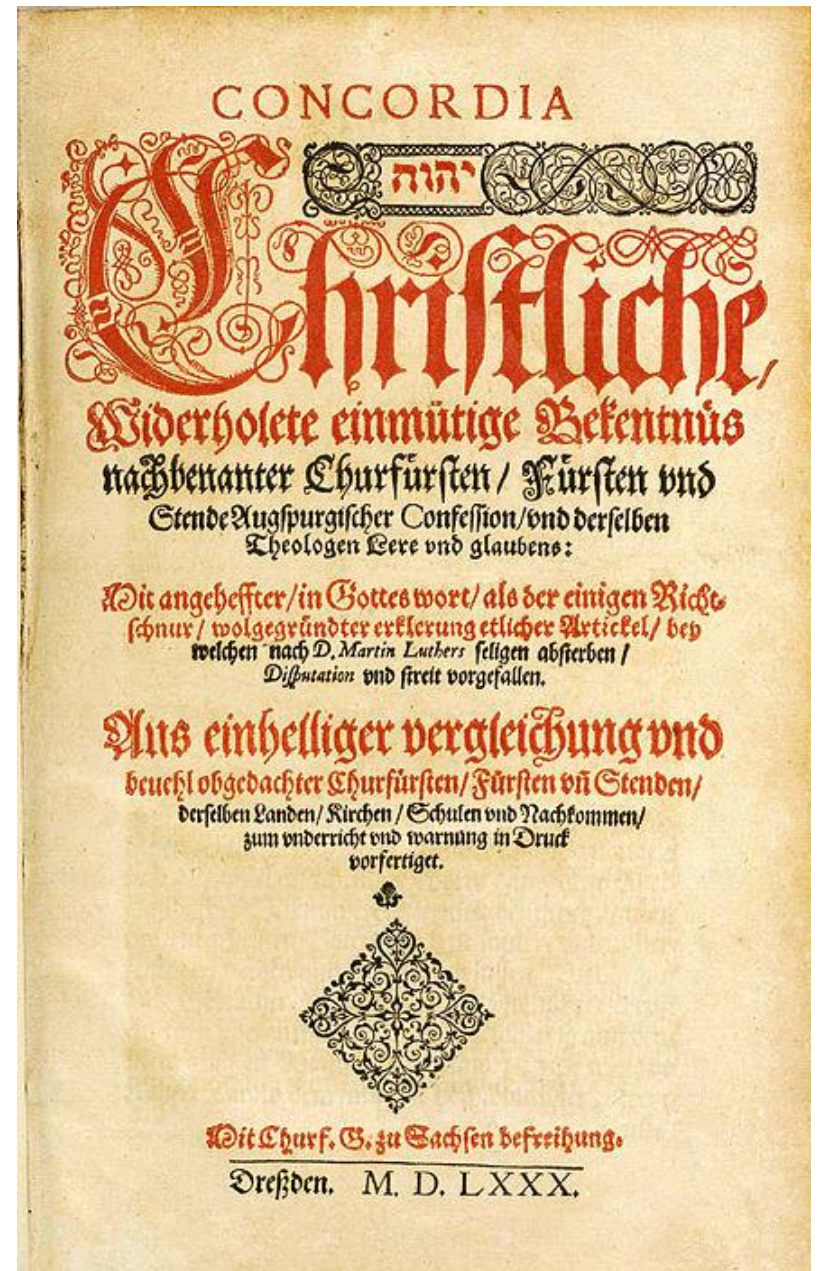 CONCORDIA
יהוה
Chriſtliche,
Widerholete einmütige Bekentnüs
nachbenanter Churfürſten/ Fürſten vnd
Stende Augſpurgiſcher Confeſſion/vnd derſelben
Theologen Lere vnd glaubens:
Mit angeheffter/in Gottes wort/ als der einigen Richt⸗
ſchnur/ wolgegründter erklerung etlicher Artickel/ bey
welchen nach D. Martin Luthers ſeligen abſterben/
Diſputation vnd ſtreit vorgefallen.
Aus einhelliger vergleichung vnd
beuehl obgedachter Churfürſten/ Fürſten vn̄ Stenden/
derſelben Landen/ Kirchen/ Schulen vnd Nachkommen/
zum vnderricht vnd warnung in Druck
vorfertiget.
Mit Churf. G. zu Sachſen befreihung.
Dreßden. M. D. LXXX.